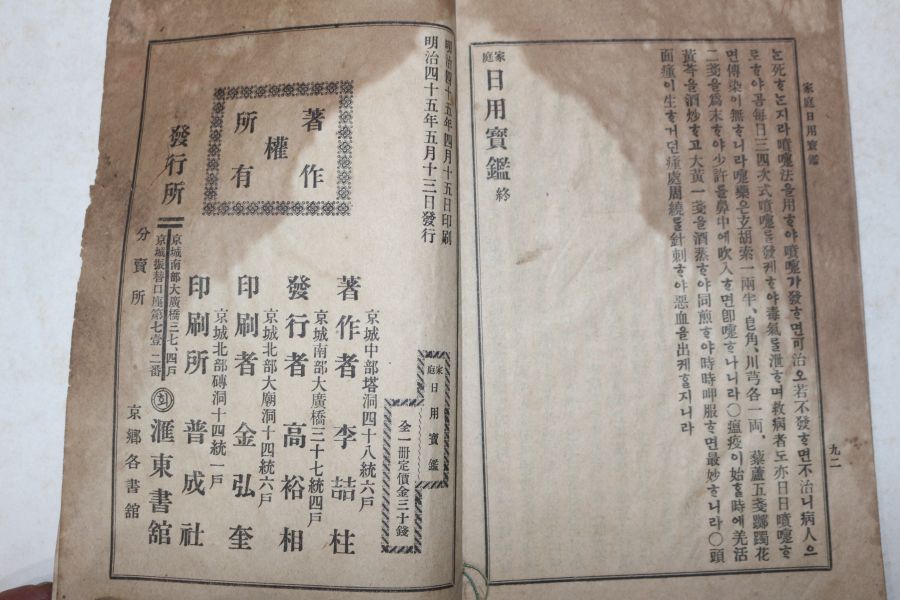 家庭日用寶鑑
九二
는死하는지라噴嚏法을用하야噴嚏가發하면可治오若不發하면不治니病人으
로하야곰每日三四次式噴嚏를發케하야毒氣를泄하며救病者도亦日日噴嚏하
면傳染이無하니라嚏藥은玄胡索一兩半、皂角、川芎各一兩、藜蘆五戔躑躅花
二戔을爲末하야少許를鼻中에吹入하면卽嚏하나니라○瘟疫이始할時에羌活
黃芩을酒炒하고大黃一戔을酒蒸하야同煎하야時時呷服하면最妙하니라○頭
面瘇이生하거던瘇處周繞를針刺하야惡血을出케할지니라
家庭日用寶鑑 終
明治四十五年四月十五日印刷
明治四十五年五月十三日發行
家庭日用寶鑑
全一冊定價金三十錢
著作
權
所有
京城中部塔洞四十八統六戶
著作者 李喆柱
京城南部大廣橋三十七統四戶
發行者 高裕相
京城北部大廟洞十四統六戶
印刷者 金弘奎
京城北部磚洞十四統一戶
印刷所 普成社
發行所
京城南部大廣橋三七、四戶
京城振替口座第七壹二番
滙東書舘
分賣所 京鄕各書舘